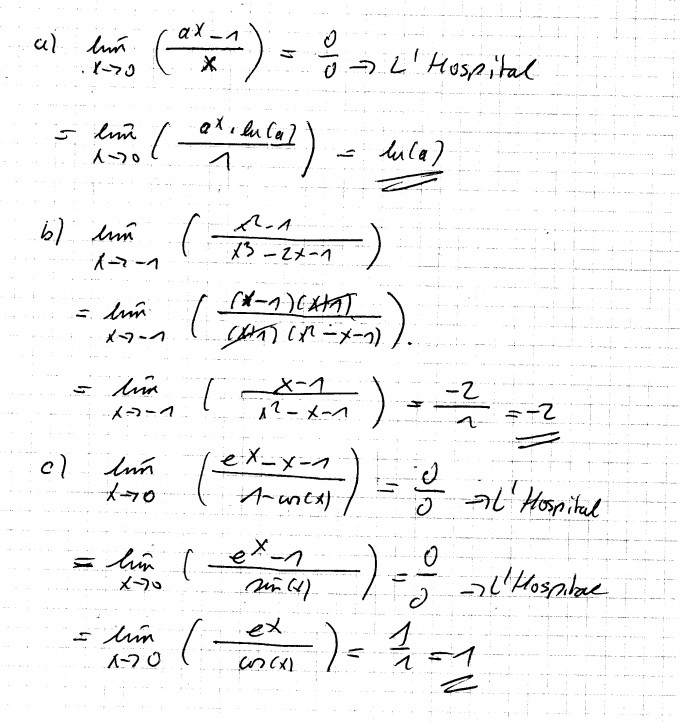 a) lim x→0 (a^x - 1 / x) = 0/0 → L'Hospital
= lim x→0 (a^x · ln(a) / 1) = ln(a)
b) lim x→-1 (x² - 1 / x³ - 2x - 1)
= lim x→-1 ((x-1)(x+1) / (x+1)(x² - x - 1)).
= lim x→-1 (x - 1 / x² - x - 1) = -2/1 = -2
c) lim x→0 (e^x - x - 1 / 1 - cos(x)) = 0/0 → L'Hospital
= lim x→0 (e^x - 1 / sin(x)) = 0/0 → L'Hospital
= lim x→0 (e^x / cos(x)) = 1/1 = 1